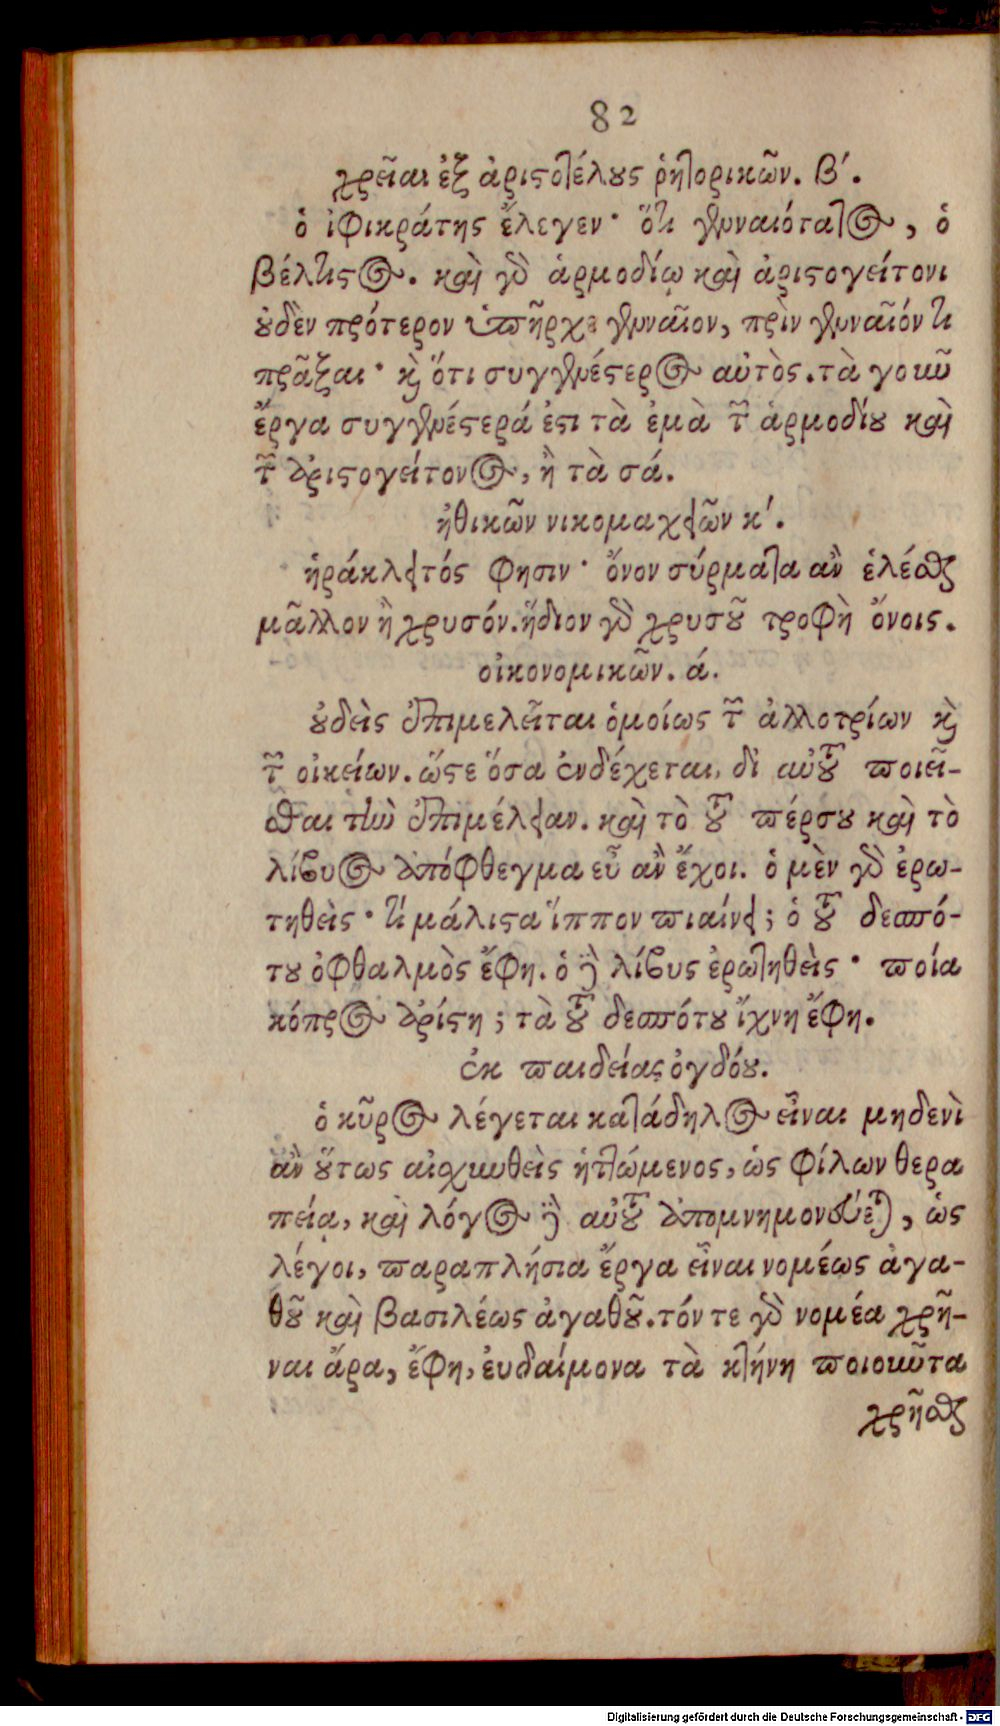 82
χρεῖαι ἐξ ἀριστοτέλους ῥητορικῶν. β΄.
ὁ ἰφικράτης ἔλεγεν· ὅτι γενναιότατος, ὁ
βέλτιστος. καὶ γὰρ ἁρμοδίῳ καὶ ἀριστογείτονι
οὐδὲν πρότερον ὑπῆρχε γενναῖον, πρὶν γενναῖόν τι
πρᾶξαι· καὶ ὅτι συγγενέστερος αὐτὸς. τὰ γοῦν
ἔργα συγγενέστερά ἐστι τὰ ἐμὰ τῶν ἁρμοδίου καὶ
τῶν ἀριστογείτονος, ἢ τὰ σά.
ἠθικῶν νικομαχείων κ΄.
ἡράκλειτός φησιν· ὄνον σύρματα ἂν ἑλέσθαι
μᾶλλον ἢ χρυσόν. ἥδιον γὰρ χρυσοῦ τροφὴ ὄνοις.
οἰκονομικῶν. ά.
οὐδεὶς ἐπιμελεῖται ὁμοίως τῶν ἀλλοτρίων καὶ
τῶν οἰκείων. ὥστε ὅσα ἐνδέχεται, δι αὑτοῦ ποιεῖ-
σθαι τὴν ἐπιμέλειαν. καὶ τὸ τοῦ πέρσου καὶ τὸ
λίβυος ἀπόφθεγμα εὖ ἂν ἔχοι. ὁ μὲν γὰρ ἐρω-
τηθεὶς· τί μάλιστα ἵππον πιαίνει; ὁ τοῦ δεσπό-
του ὀφθαλμὸς ἔφη. ὁ δὲ λίβυς ἐρωτηθεὶς· ποία
κόπρος ἀρίστη; τὰ τοῦ δεσπότου ἴχνη ἔφη.
ἐκ παιδείας ὀγδόου.
ὁ κῦρος λέγεται κατάδηλος εἶναι μηδενὶ
ἂν οὕτως αἰσχυνθεὶς ἡττώμενος, ὡς φίλων θερα
πείᾳ, καὶ λόγος δὲ αὐτοῦ ἀπομνημονεύεται, ὡς
λέγοι, παραπλήσια ἔργα εἶναι νομέως ἀγα-
θοῦ καὶ βασιλέως ἀγαθοῦ. τόν τε γὰρ νομέα χρῆ-
ναι ἄρα, ἔφη, ἐυδαίμονα τὰ κτήνη ποιοῦντα
χρῆσθαι
Digitalisierung gefördert durch die Deutsche Forschungsgemeinschaft - DFG